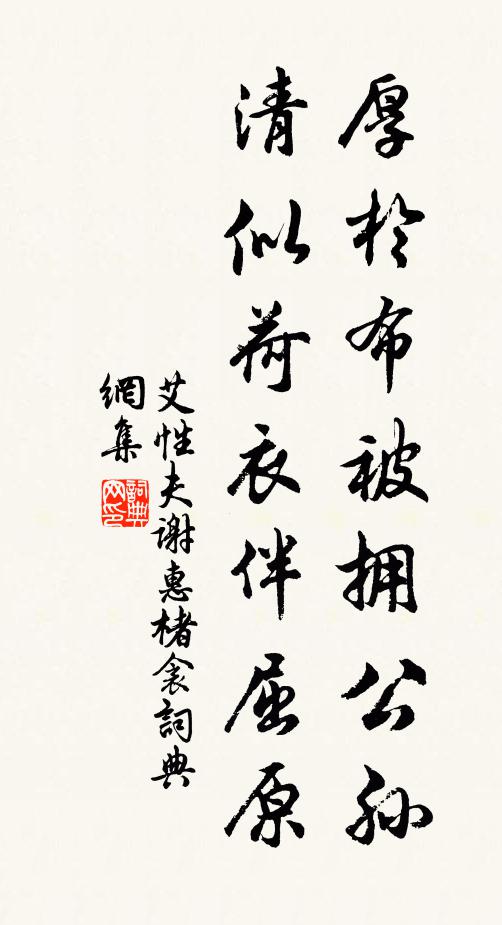 厚於布被拥公孙
清似荷衣伴屈原
艾性夫谢惠楮衾詞典
網集
詞典网印